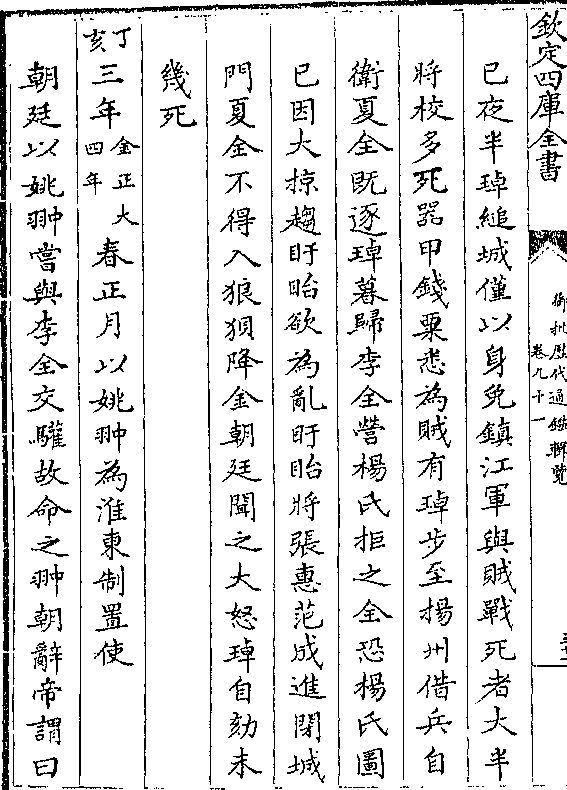 欽定四庫全書
御批歷代通鑑輯覽
卷九十一
巳夜半琸縋城僅以身免鎮江軍與賊戰死者大半
將校多死器甲錢粟悉為賊有琸步至揚州借兵自
衛夏全既逐琸暮歸李全營楊氏拒之全恐楊氏圖
已因大掠趨盱眙欲為亂盱眙將張惠范成進閉城
門夏全不得入狼狽降金朝廷聞之大怒琸自劾未
幾死
丁亥三年金正大四年春正月以姚翀為淮東制置使
朝廷以姚翀嘗與李全交驩故命之翀朝辭帝謂曰